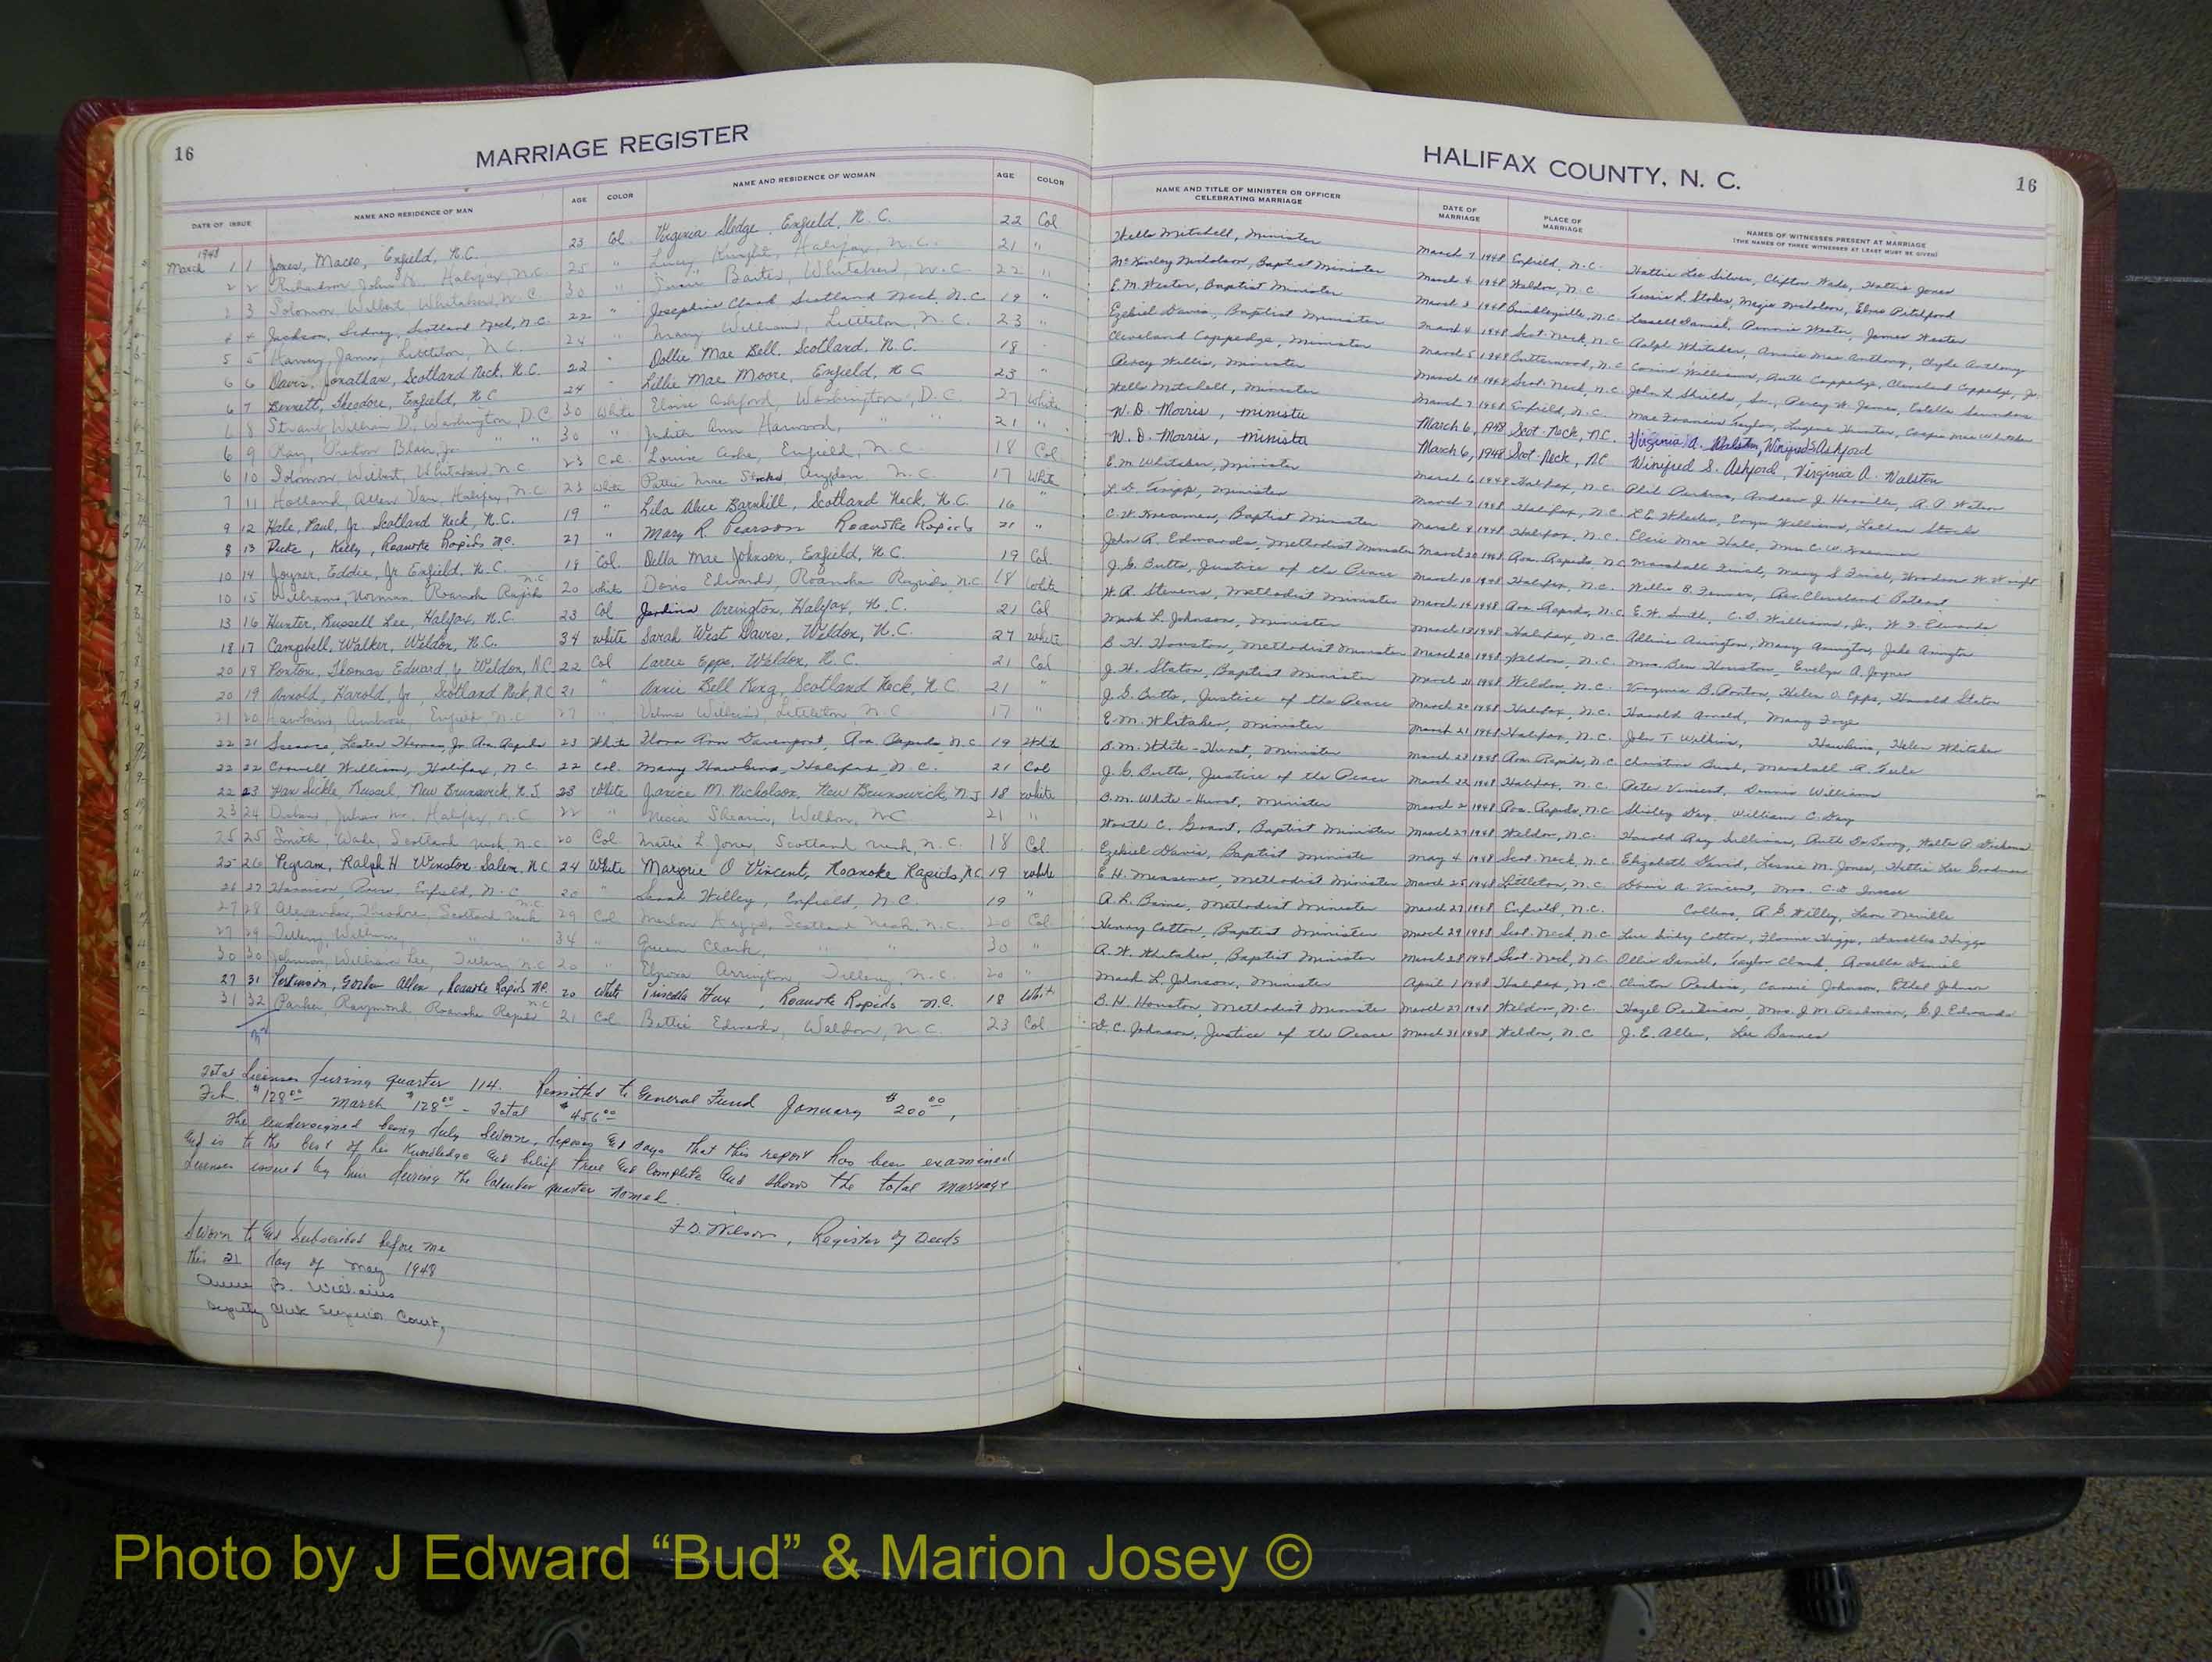 16
MARRIAGE REGISTER
DATE OF ISSUE
NAME AND RESIDENCE OF MAN
AGE
COLOR
NAME AND RESIDENCE OF WOMAN
AGE
COLOR
1948
March 1 1 Jones, Maceo, Enfield, N.C. 23 Col. Virginia Sledge, Enfield, N.C. 22 Col
2 2 Richardson John Halifax, N.C. 25 " Lucy Knight, Halifax, N.C. 21 "
3 Solomon Wilbert Whitakers, N.C 30 " Baites, Whitakers, N.C. 22 "
4 4 Jackson, Sidney, Scotland Neck, N.C. 22 " Josephine Clark Scotland Neck, N.C 19 "
5 5 Harvey, James, Littleton, N.C. 24 " Mary Williams, Littleton, N.C. 23 "
6 6 Davis, Jonathan, Scotland Neck, N.C. 22 Dollie Mae Bell, Scotland, N.C. 18
6 7 Bennett, Theodore, Enfield, N.C 24 " Lillie Mae Moore, Enfield, N.C 23 "
6 8 Stewart William D. Washington, D.C 30 White Eloise Ashford, Washington, D.C. 27 White
6 9 Ray, Preston Blair, Jr. " " 30 " Judith Ann Harwood, " " 21 "
6 10 Solomon Wilbert, Whitakers N.C 23 Col. Louise Ashe, Enfield, N.C. 18 Col
7 11 Holland, Allen Van, Halifax, N.C. 23 White Pattie Mae Stocks, N.C. 17 White
9 12 Hale, Paul, Jr Scotland Neck, N.C. 19 " Lila Alice Barnhill, Scotland Neck, N.C. 16 "
8 13 Pete, Kelly, Roanoke Rapids N.C. 27 " Mary R. Pearson Roanoke Rapids 21 "
10 14 Joyner, Eddie, Jr Enfield, N.C. 18 Col. Della Mae Johnson, Enfield, N.C. 19 Col.
10 15 Williams, Norman Roanoke Rapids N.C. 20 White Doris Edwards, Roanoke Rapids N.C. 18 White
13 16 Hunter, Russell Lee, Halifax, N.C. 23 Col Jerdina Arrington, Halifax, N.C. 21 Col
18 17 Campbell, Walker, Weldon, N.C. 34 White Sarah West Davis, Weldon, N.C. 27 White
20 18 Ponton, Thomas Edward, Jr. Weldon, N.C. 22 Col Epps, Weldon, N.C. 21 Col
20 19 Arnold, Harold, Jr, Scotland Neck, N.C 21 " Annie Bell King, Scotland Neck, N.C 21 "
21 20 Hawkins, Ambrose, Enfield N.C 27 " Velma Williams, Littleton, N.C 17 "
22 21 Lester Thomas, Jr. Roa. Rapids 23 White Flora Ann Davenport, Roa. Rapids, N.C 19 White
22 22 Crowell William, Halifax, N.C. 22 Col. Mary Hawkins, Halifax, N.C. 21 Col
22 23 Van Sickle, Russel, New Brunswick, N.J 23 White Janice M. Nicholson, New Brunswick, N.J 18 White
23 24 Halifax, N.C 22 " Shearin, Weldon, N.C 21 "
25 25 Smith, Wade, Scotland Neck, N.C. 20 Col. Mattie L. Jones, Scotland Neck, N.C. 18 Col.
25 26 Pegram, Ralph H Winston Salem, N.C 24 White Marjorie O Vincent, Roanoke Rapids, N.C 19 White
26 27 Harrison, Enfield, N.C 20 " Sarah Willey, Enfield, N.C. 19 "
27 28 Alexander, Theodore, Scotland Neck N.C. 29 Col. Marlon Scotland Neck, N.C. 20 Col.
27 29 Tillery, William, " " 34 " Queen Clark, " " 30 "
30 30 Johnson, William Lee, Tillery, N.C 20 " Elnora Arrington Tillery, N.C. 20 "
27 31 Perkinson, Gordon Allen, Roanoke Rapids N.C. 20 White Priscilla Hux, Roanoke Rapids N.C. 18 White
31 32 Parker, Raymond Roanoke Rapids N.C 21 Col Bettie Edwards, Weldon, N.C. 23 Col
Total Licenses during quarter 114. Remitted to General Fund January $200.00,
Feb. $128.00 March $128.00 - Total $456.00
The undersigned being duly sworn, deposes and says that this report has been examined
and is to the best of his knowledge and belief, true and complete and shows the total marriage
licenses issued by him during the calendar quarter named.
F.D. Wilson, Register of Deeds
Sworn to and subscribed before me
this 21 day of May 1948
B. Williams
Deputy Clerk Superior Court,
HALIFAX COUNTY, N. C.
16
NAME AND TITLE OF MINISTER OR OFFICER
CELEBRATING MARRIAGE
DATE OF
MARRIAGE
PLACE OF
MARRIAGE
NAMES OF WITNESSES PRESENT AT MARRIAGE
(THE NAMES OF THREE WITNESSES AT LEAST MUST BE GIVEN)
Wells Mitchell, Minister March 7 1948 Enfield, N.C. Hattie Lee Silver, Clifton Wade, Hattie Jones
McKinley Nicholson, Baptist Minister March 4 1948 Weldon, N.C. L Stokes, Nicholson, Pitchford
E.M. Wester, Baptist Minister March 3 1948 Brinkleyville, N.C. Daniel, Pennie Wester, James Wester
Ezekiel Davis, Baptist Minister March 4 1948 Scot. Neck, N.C. Ralph Whitaker, Annie Mae Anthony, Clyde Anthony
Cleveland Coppedge, Minister March 5 1948 Butterwood, N.C Corine Williams, Ruth Coppedge, Cleveland Coppedge, Jr.
Percy Willis, Minister March 14 1948 Scot. Neck, N.C. John L. Shields, Sr., Percy W. James, Estelle Saunders
Wells Mitchell, Minister March 7 1948 Enfield, N.C. Mae Francis Taylor, Eugene Hunter, Mae Whitaker
W. D. Morris, Minister March 6, 1948 Scot. Neck, N.C. Virginia A. Walston, Winifred S Ashford
W. D. Morris, Minister March 6, 1948 Scot. Neck, N.C Winifred S. Ashford, Virginia A. Walston
E.M. Whitaker, Minister March 6 1948 Halifax, N.C. Phil Perkins, Andrew J. R A Wilson
L. D. Tripp, Minister March 7 1948 Halifax, N.C. L E Wheeler, Williams, Stocks
C. W. Kreamer, Baptist Minister March 9 1948 Halifax, N.C. Elsie Mae Hale, Mrs. C. W. Kreamer
John R. Edwards, Methodist Minister March 20 1948 Roa. Rapids, N.C Marshall Finch, Mary S Finch, Woodrow W. Wright
J. G. Butts, Justice of the Peace March 10 1948 Halifax, N.C. Willie B. Rev. Cleveland
W. R. Stevens, Methodist Minister March 14 1948 Roa. Rapids, N.C. E. W. Smith, C. D. Williams, Jr., W. F. Edwards
Mark L. Johnson, Minister March 13 1948 Halifax, N.C. Arrington, Mary Arrington, Jake Arrington
B. H. Houston, Methodist Minister March 20 1948 Weldon, N.C. Mrs. Ben Houston, Evelyn A. Joyner
J. H. Staton, Baptist Minister March 21 1948 Weldon, N.C. Virginia B. Ponton, Helen O. Epps, Harold Staton
J. G. Butts, Justice of the Peace March 20 1948 Halifax, N.C. Harold Arnold, Mary
E.M. Whitaker, Minister March 21 1948 Halifax, N.C. John T. Wilkins, Hawkins, Helen Whitaker
B.M. White-Hurst, Minister March 23 1948 Roa. Rapids, N.C. Christine Marshall R.
J. G. Butts, Justice of the Peace March 22 1948 Halifax, N.C. Peter Vincent, Dennis Williams
B.M. White-Hurst, Minister March 1948 Roa. Rapids, N.C. Shirley Day, William C. Day
C. Grant, Baptist Minister March 27 1948 Weldon, N.C. Harold Ray Sullivan, Ruth Walter P.
Ezekiel Davis, Baptist Minister May 4 1948 Scot. Neck, N.C. Elizabeth David, Lessie M. Jones, Hettie Lee Goodman
E.H. Messemer, Methodist Minister March 25 1948 Littleton, N.C. A. Vincent, Mrs. C.D.
A. L. Methodist Minister March 27 1948 Enfield, N.C. Collins, R. G. Willey, Leon Neville
Henry Cotton, Baptist Minister March 29 1948 Scot. Neck, N.C. Cotton, Higgs, Higgs
R. W. Whitaker, Baptist Minister March 28 1948 Scot. Neck, N.C. Ollie Daniel, Taylor Clark, Rosella Daniel
Mark L. Johnson, Minister April 1 1948 Halifax, N.C Clinton Perkins, Carrie Johnson, Ethel Johnson
B. H. Houston, Methodist Minister March 27 1948 Weldon, N.C. Hazel Perkinson, Mrs. J.M. Perkinson, G.J. Edwards
C. Johnson, Justice of the Peace March 31 1948 Weldon, N.C J. E. Allen, Lee Barnes
Photo by J Edward “Bud” & Marion Josey ©